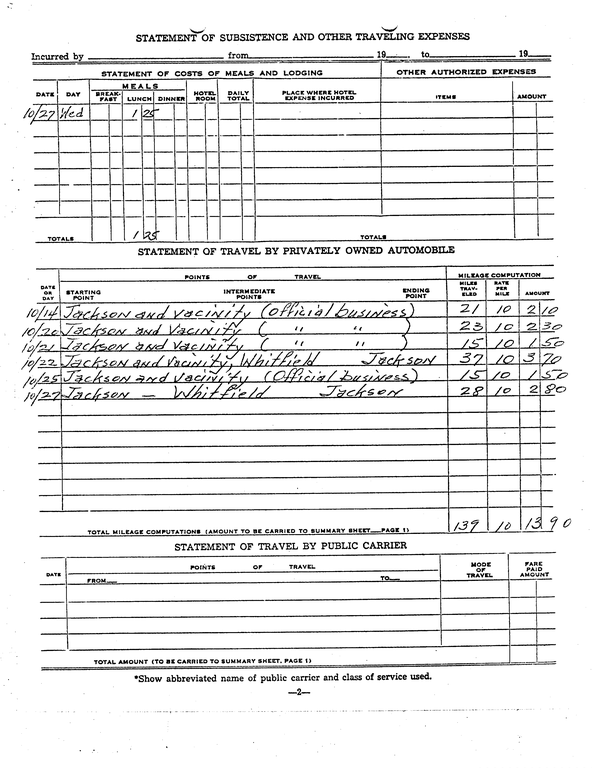 STATEMENT OF SUBSISTENCE AND OTHER TRAVELING EXPENSES
Incurred by from 19 to 19
STATEMENT OF COSTS OF MEALS AND LODGING OTHER AUTHORIZED EXPENSES
DATE DAY MEALS BREAK-FAST LUNCH DINNER HOTEL ROOM DAILY TOTAL PLACE WHERE HOTEL EXPENSE INCURRED ITEMS AMOUNT
10/27 Wed 1 25
TOTALS 1 25 TOTALS
STATEMENT OF TRAVEL BY PRIVATELY OWNED AUTOMOBILE
POINTS OF TRAVEL MILEAGE COMPUTATION
DATE OR DAY STARTING POINT INTERMEDIATE POINTS ENDING POINT MILES TRAV-ELED RATE PER MILE AMOUNT
10/14 Jackson and vacinity (official business) 21 10 2 10
10/20 Jackson and Vacinity ( " " ) 23 10 2 30
10/21 Jackson and vacinity ( " " ) 15 10 1 50
10/22 Jackson and Vacinity, Whitfield Jackson 37 10 3 70
10/25 Jackson and Vacinity (Official business) 15 10 1 50
10/27 Jackson — Whitfield Jackson 28 10 2 80
TOTAL MILEAGE COMPUTATIONS (AMOUNT TO BE CARRIED TO SUMMARY SHEET PAGE 1) 139 10 13 90
STATEMENT OF TRAVEL BY PUBLIC CARRIER
DATE POINTS OF TRAVEL MODE OF TRAVEL FARE PAID AMOUNT
FROM TO
TOTAL AMOUNT (TO BE CARRIED TO SUMMARY SHEET, PAGE 1)
*Show abbreviated name of public carrier and class of service used.
—2—